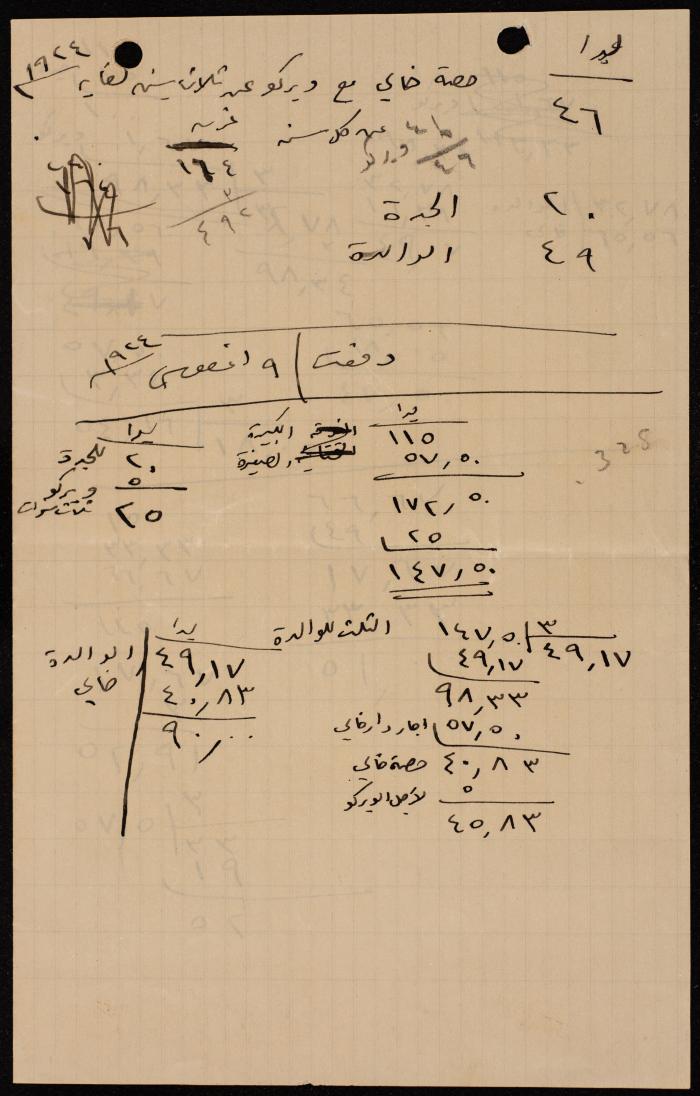 ليرا
٤٦ حصة خالي مع ويركو عن ثلاث سنين لغاية ١٩٢٤
عن كل سنة
غرش
١٦٤
٣
٤٩٢
٢٠ الجدة
٤٩ الوالدة
دفعت ٩ اغسطس ١٩٢٤
ليرا
١١٥ الكبيرة
٥٧,٥٠ الصغيرة
١٧٢,٥٠
٢٥
١٤٧,٥٠
ليرا
٢٠ للجدة
٥ ويركو ثلاث سنوات
٢٥
325
١٤٧,٥٠ ٣ الثلث للوالدة
٤٩,١٧ ٤٩,١٧
٩٨,٣٣
٥٧,٥٠ اجار دار خالي
٤٠,٨٣ حصة خالي
٥ لاجل الويركو
٤٥,٨٣
ليرا
٤٩,١٧ الوالدة
٤٠,٨٣ خالي
٩٠,٠٠